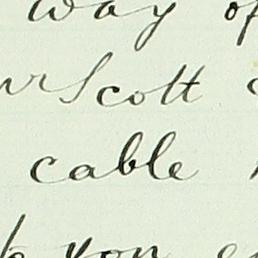 way of
Scott
cable
you